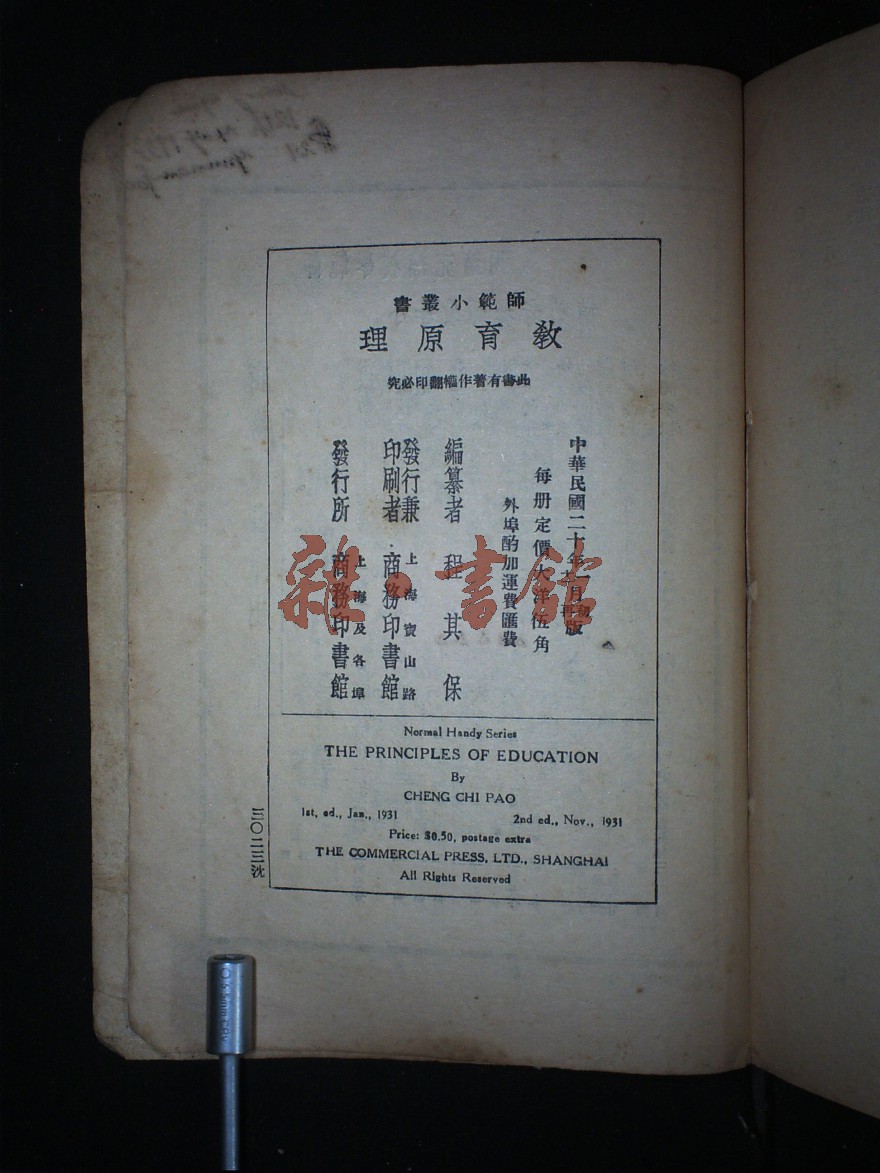 師範小叢書
教育原理
此書有著作權翻印必究
中華民國二十年
一月初版
十一月再版
每册定價大洋伍角
外埠酌加運費匯費
編纂者 程其保
發行兼印刷者 上海寶山路 商務印書館
發行所 上海及各埠 商務印書館
雜·書館
Normal Handy Series
THE PRINCIPLES OF EDUCATION
By
CHENG CHI PAO
1st, ed., Jan., 1931 2nd ed., Nov., 1931
Price: $0.50, postage extra
THE COMMERCIAL PRESS, LTD., SHANGHAI
All Rights Reserved
三〇二三沈